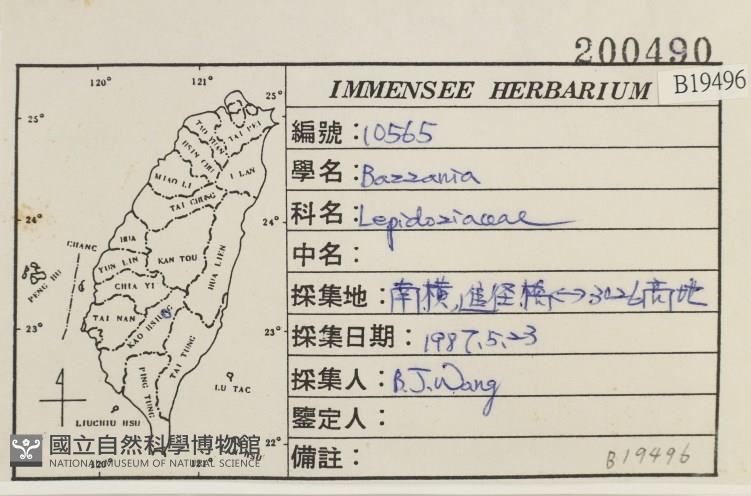 200490
IMMENSEE HERBARIUM
B19496
編號：10565
學名：Bazzania
科名：Lepidoziaceae
中名：
採集地：南橫,進徑橋↔3026高地
採集日期：1987.5.23
採集人：B.J.Wang
鑒定人：
備註：
B19496
120° 121°
25° 25°
TAO YUAN
TAI PEI
HSIN CHU
I LAN
MIAO LI
TAI CHUNG
24° 24°
CHANG HUA
PENG HU
YUN LIN
KAN TOU
HUA LIEN
CHIA YI
TAI NAN
KAO HSIUNG
23° 23°
TAI TUNG
PING TUNG
LU TAO
LIUCHIU HSU
HSU
22°
120° 121°
國立自然科學博物館
NATIONAL MUSEUM OF NATURAL SCIENCE